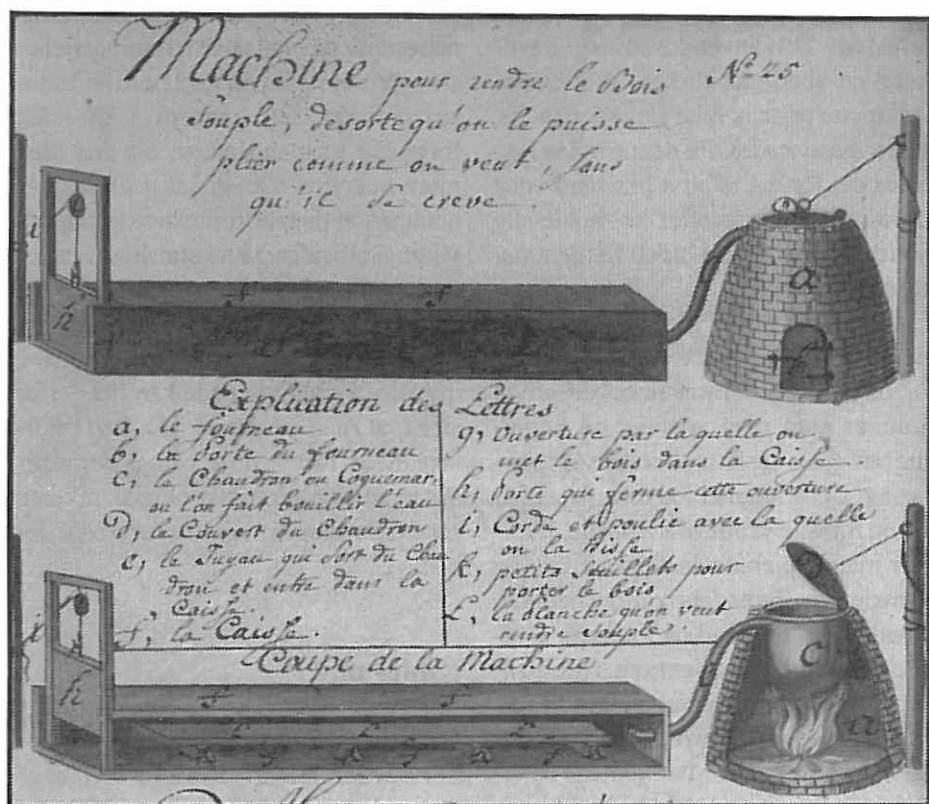 Machine pour rendre le Bois
No 25
Souple, desorte qu'on le puisse
plier comme on veut, sans
qu'il se creve.
i
h
f f
a
Explication des Lettres
a, le fourneau
b, la Porte du fourneau
C, le Chaudron ou Coquemar,
ou l'on fait bouillir l'eau
D, le Couvert du Chaudron
e, le Tuyau qui sort du Chau
dron et entre dans la
Caisse.
f, la Caisse.
g, Ouverture par laquelle on
met le bois dans la Caisse.
h, Porte qui ferme cette ouverture
i, Corde et poulie avec la quelle
on la Hisse
k, petits Seuillets pour
porter le bois
L, la planche qu'on veut
rendre souple.
Coupe de la Machine
i
h
f f
L L L
C
a